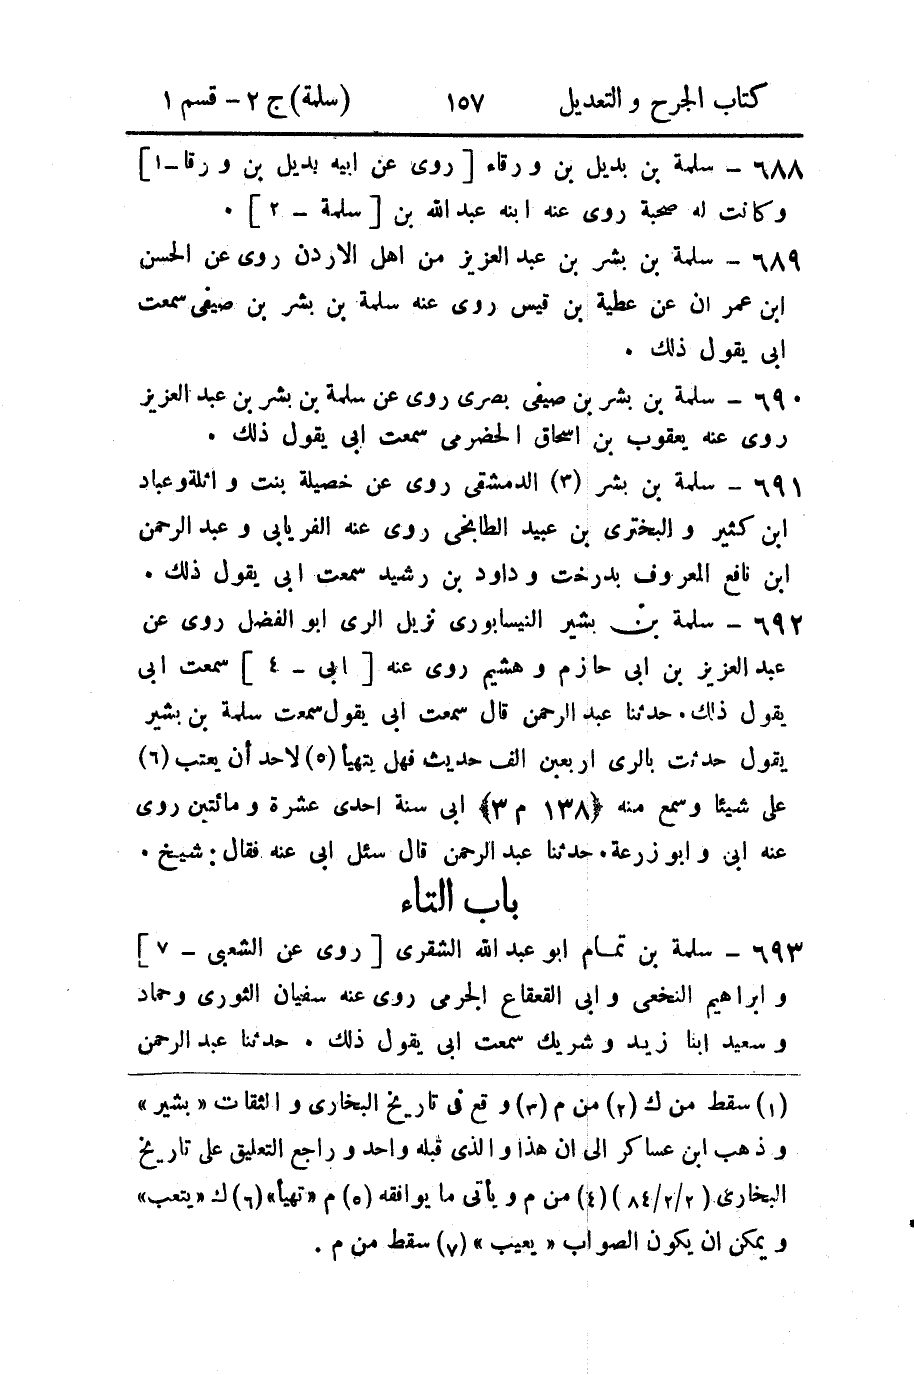 كتاب الجرح و التعديل ١٥٧ (سلمة) ج ٢ – قسم ١
٦٨٨ – سلمة بن بديل بن و رقاء [ روى عن ابيه بديل بن و رقا – ١ ]
وكانت له صحبة روى عنه ابنه عبد الله بن [ سلمة – ٢ ] .
٦٨٩ – سلمة بن بشر بن عبد العزيز من اهل الاردن روى عن الحسن
ابن عمر ان عن عطية بن قيس روى عنه سلمة بن بشر بن صيفى سمعت
ابى يقول ذلك .
٦٩٠ – سلمة بن بشر بن صيفى بصرى روى عن سلمة بن بشر بن عبد العزيز
روى عنه يعقوب بن اسحاق الحضرمى سمعت ابى يقول ذلك .
٦٩١ – سلمة بن بشر (٣) الدمشقى روى عن خصيلة بنت و اثلة وعباد
ابن كثير و البخترى بن عبيد الطابخى روى عنه الفريابى و عبد الرحمن
ابن نافع المعروف بدرخت و داود بن رشيد سمعت ابى يقول ذلك .
٦٩٢ – سلمة بن بشير النيسابورى نزيل الرى ابو الفضل روى عن
عبد العزيز بن ابى حازم و هشيم روى عنه [ ابى – ٤ ] سمعت ابى
يقول ذلك . حدثنا عبد الرحمن قال سمعت ابى يقول سمعت سلمة بن بشير
يقول حدثت بالرى اربعين الف حديث فهل يتهيأ (٥) لاحد أن يعتب (٦)
على شيئا وسمع منه ﴿١٣٨ م ٣﴾ ابى سنة احدى عشرة و مائتين روى
عنه ابى و ابو زرعة . حدثنا عبد الرحمن قال سئل ابى عنه فقال : شيخ .
باب التاء
٦٩٣ – سلمة بن تمام ابو عبد الله الشقرى [ روى عن الشعبى – ٧ ]
و ابراهيم النخعى و ابى القعقاع الجرمى روى عنه سفيان الثورى وحماد
و سعيد ابنا زيد و شريك سمعت ابى يقول ذلك . حدثنا عبد الرحمن
(١) سقط من ك (٢) من م (٣) و قع فى تاريخ البخارى و الثقات « بشير »
و ذهب ابن عساكر الى ان هذا و الذى قبله واحد و راجع التعليق على تاريخ
البخارى ( ٢/٢/ ٨٤ ) (٤) من م و يأتى ما يوافقه (٥) م «تهيأ» (٦) ك «يتعب»
و يمكن ان يكون الصواب « يعيب » (٧) سقط من م .